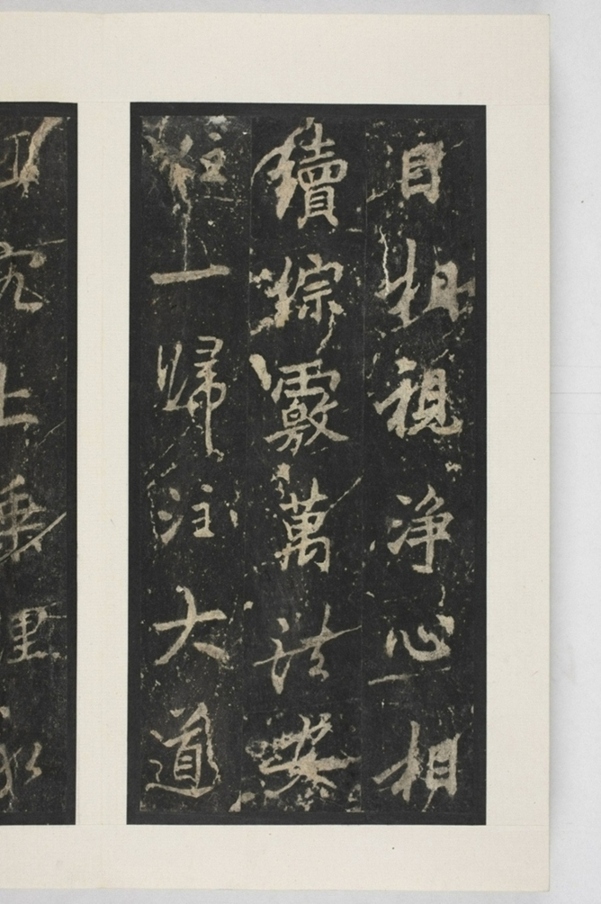 目視淨心相
續綜覈萬法
一歸注大道
究上乘理